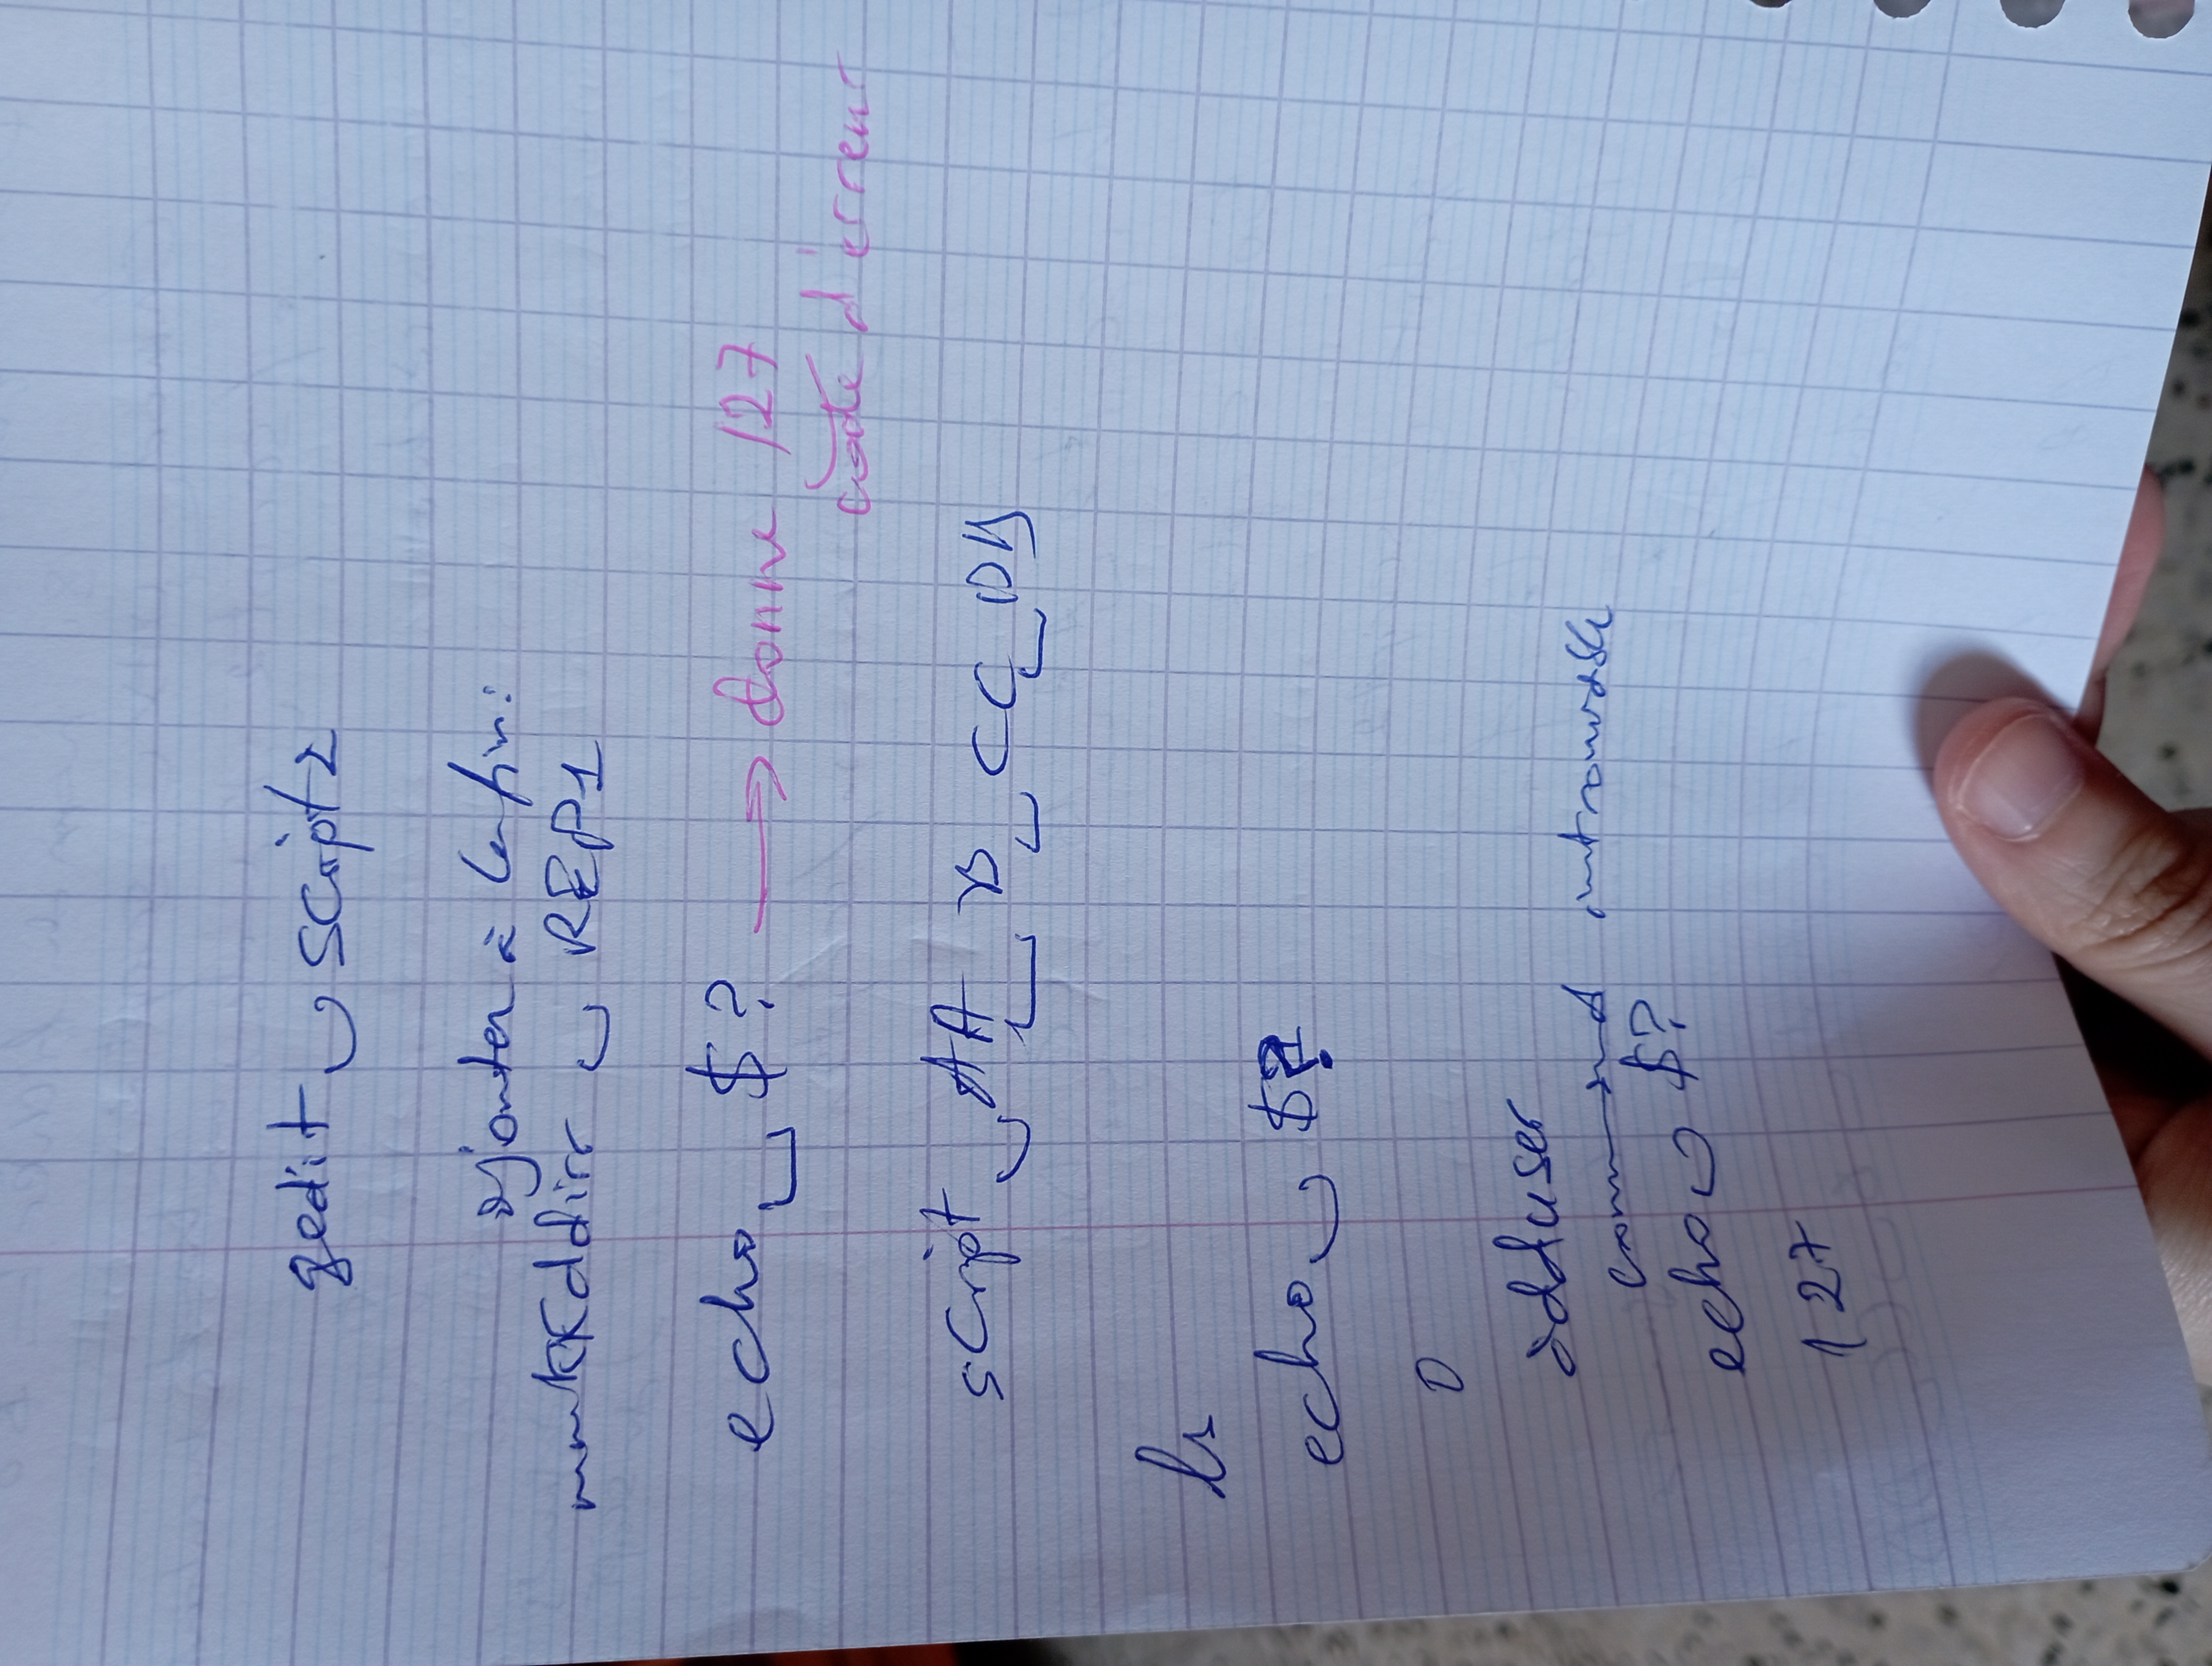 gedit ␣ script2
ajouter à la fin :
mmkkddirr ␣ REP1
echo ␣ $? → donne 127
code d'erreur
script ␣ AA ␣ B ␣ CC ␣ DD
ls
echo ␣ $?
0
adduser
command introuvable
echo ␣ $?
127